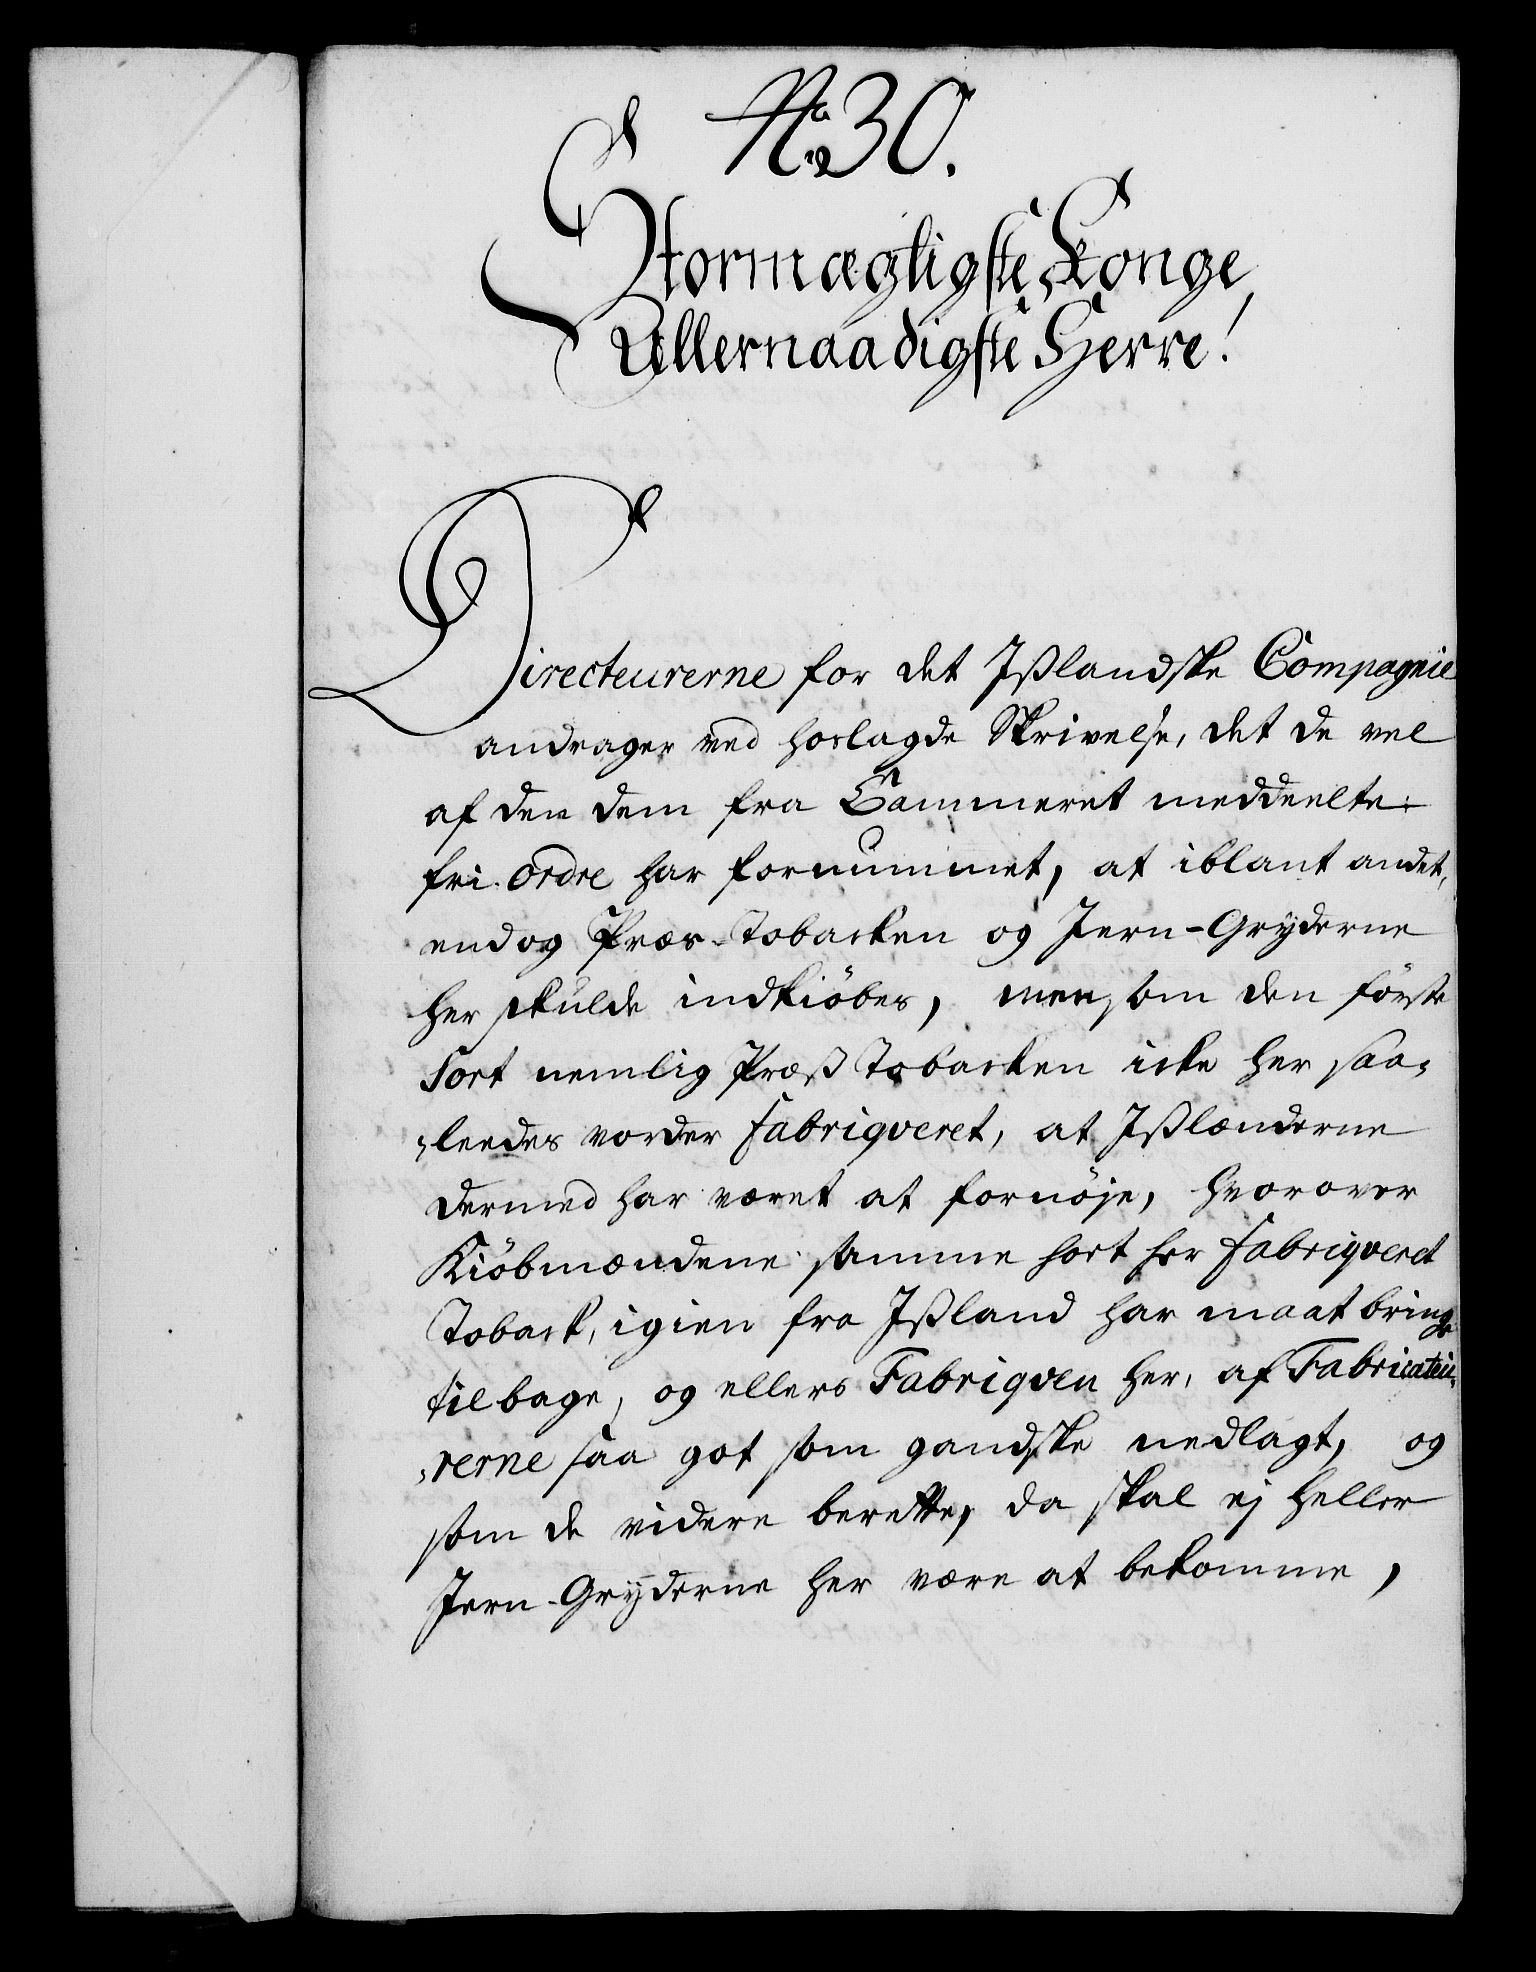 No 30.
Stormægtigste Konge
Allernaadigste Herre!
Directeurerne for det Jßlandske Compagnie
andrager ved hoslagde Skrivelse, det de vel
af den dem fra Cammeret meddeelte
fri ordre har fornummet, at iblant andet,
endog Præs-Tobacken og Jern-Gryderne
her skulde indkiöbes, men som den förste
Sort nemlig Præß Tobacken icke her saa-
leedes vorder fabriqveret, at Jßlænderne
dermed har været at fornöje, hvorover
Kiöbmændene samme sort her fabriqveret
Toback, igien fra Jßland har maat bringe
tilbage, og ellers Fabriqven her, af Fabricateu-
rerne saa got som gandske nedlagt, og
som de videre berette, da skal ej heller
Jern-Gryderne her være at bekomme,